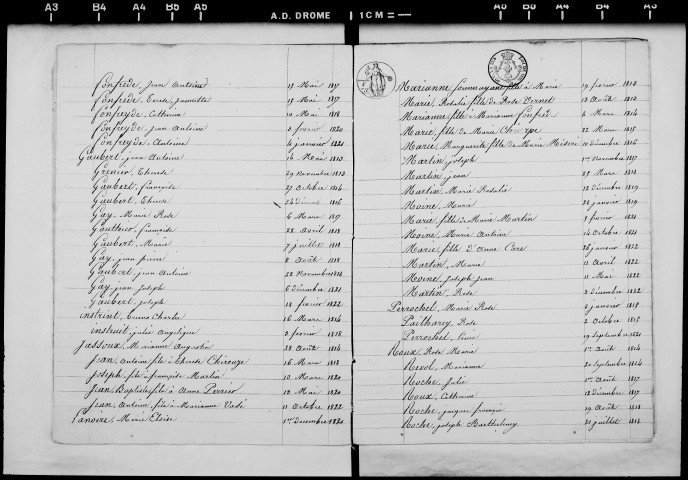 A3 B4 A4 B5 A5 A.D. DROME 1CM A5 B5 A4 B4 A3
Gonfrède, Jean Antoine 18 Mai 1817
Gonfrède, 18 Mai 1817
Gonfreyde, Catherine 10 Mai 1818
Gonfreyde, Jean Antoine 3 février 1820
Gonfreyde, Antoine 4 janvier 1821
Gaubert, jean Antoine 14 Mai 1813
Grenier, Therese 29 Novembre 1813
Gaubert, françoise 27 Octobre 1814
Gaubert, Therese 24 Décemb. 1816
Gay, Marie Rose 6 Mars 1817
Gauthier, françoise 22 avril 1818
Gaubert, Marie 7 juillet 1818
Gay, jean pierre 8 Août 1818
Gaubert, jean Antoine 22 Novembre 1818
Gay, jean Joseph 6 Décembre 1821
Gaubert, joseph 18 février 1822
instruit, Charles 16 Mars 1814
instruit, julie Angelique 3 fevrier 1818
Jassoux, Marianne Augustin 28 Août 1814
jean, Antoine fils à Therese Chirouze 16 Mars 1818
joseph, fils à françoise Martin 10 Mars 1820
Jean Baptiste fils à Anne Perrier 13 Mai 1820
jean, Antoine, fils à Marianne 11 Octobre 1822
Marie Eloise 1er Décembre 1820
Marianne, fille à Marie 19 fevrier 1810
Marie, Rosalie fille de Rose Vernet 13 Août 1810
Marianne, fille à Marianne 6 Mars 1814
Marie, fille de Marie 22 Mars 1815
Marie, Marguerite, fille de Marie 10 Décembre 1816
Martin, joseph 1er Novembre 1817
Martin, jean 29 Mars 1818
Martin, Marie Rosalie 12 Décembre 1819
Moine, Marie 28 janvier 1819
Marie, fille de Marie Martin 9 fevrier 1821
Moine, Marie Antoine 14 Octobre 1821
Marie, fille d'Anne Care 26 janvier 1822
Martin, Marie 11 Avril 1822
Moine, Joseph jean 11 Mai 1822
Martin, Rose 3 Décembre 1822
Perrochet, Marie Rose 8 janvier 1815
Rose 2 Octobre 1815
Perrochet, 19 Septembre 1821
Roux, Rose Marie 1er Août 1814
Revol, Marianne 20 Septembre 1814
Roche, Julie 1er Août 1817
Roux, Catherine 12 Décembre 1817
Roche, jacques françois 19 Août 1818
Roche, joseph Barthelemy 31 juillet 1818